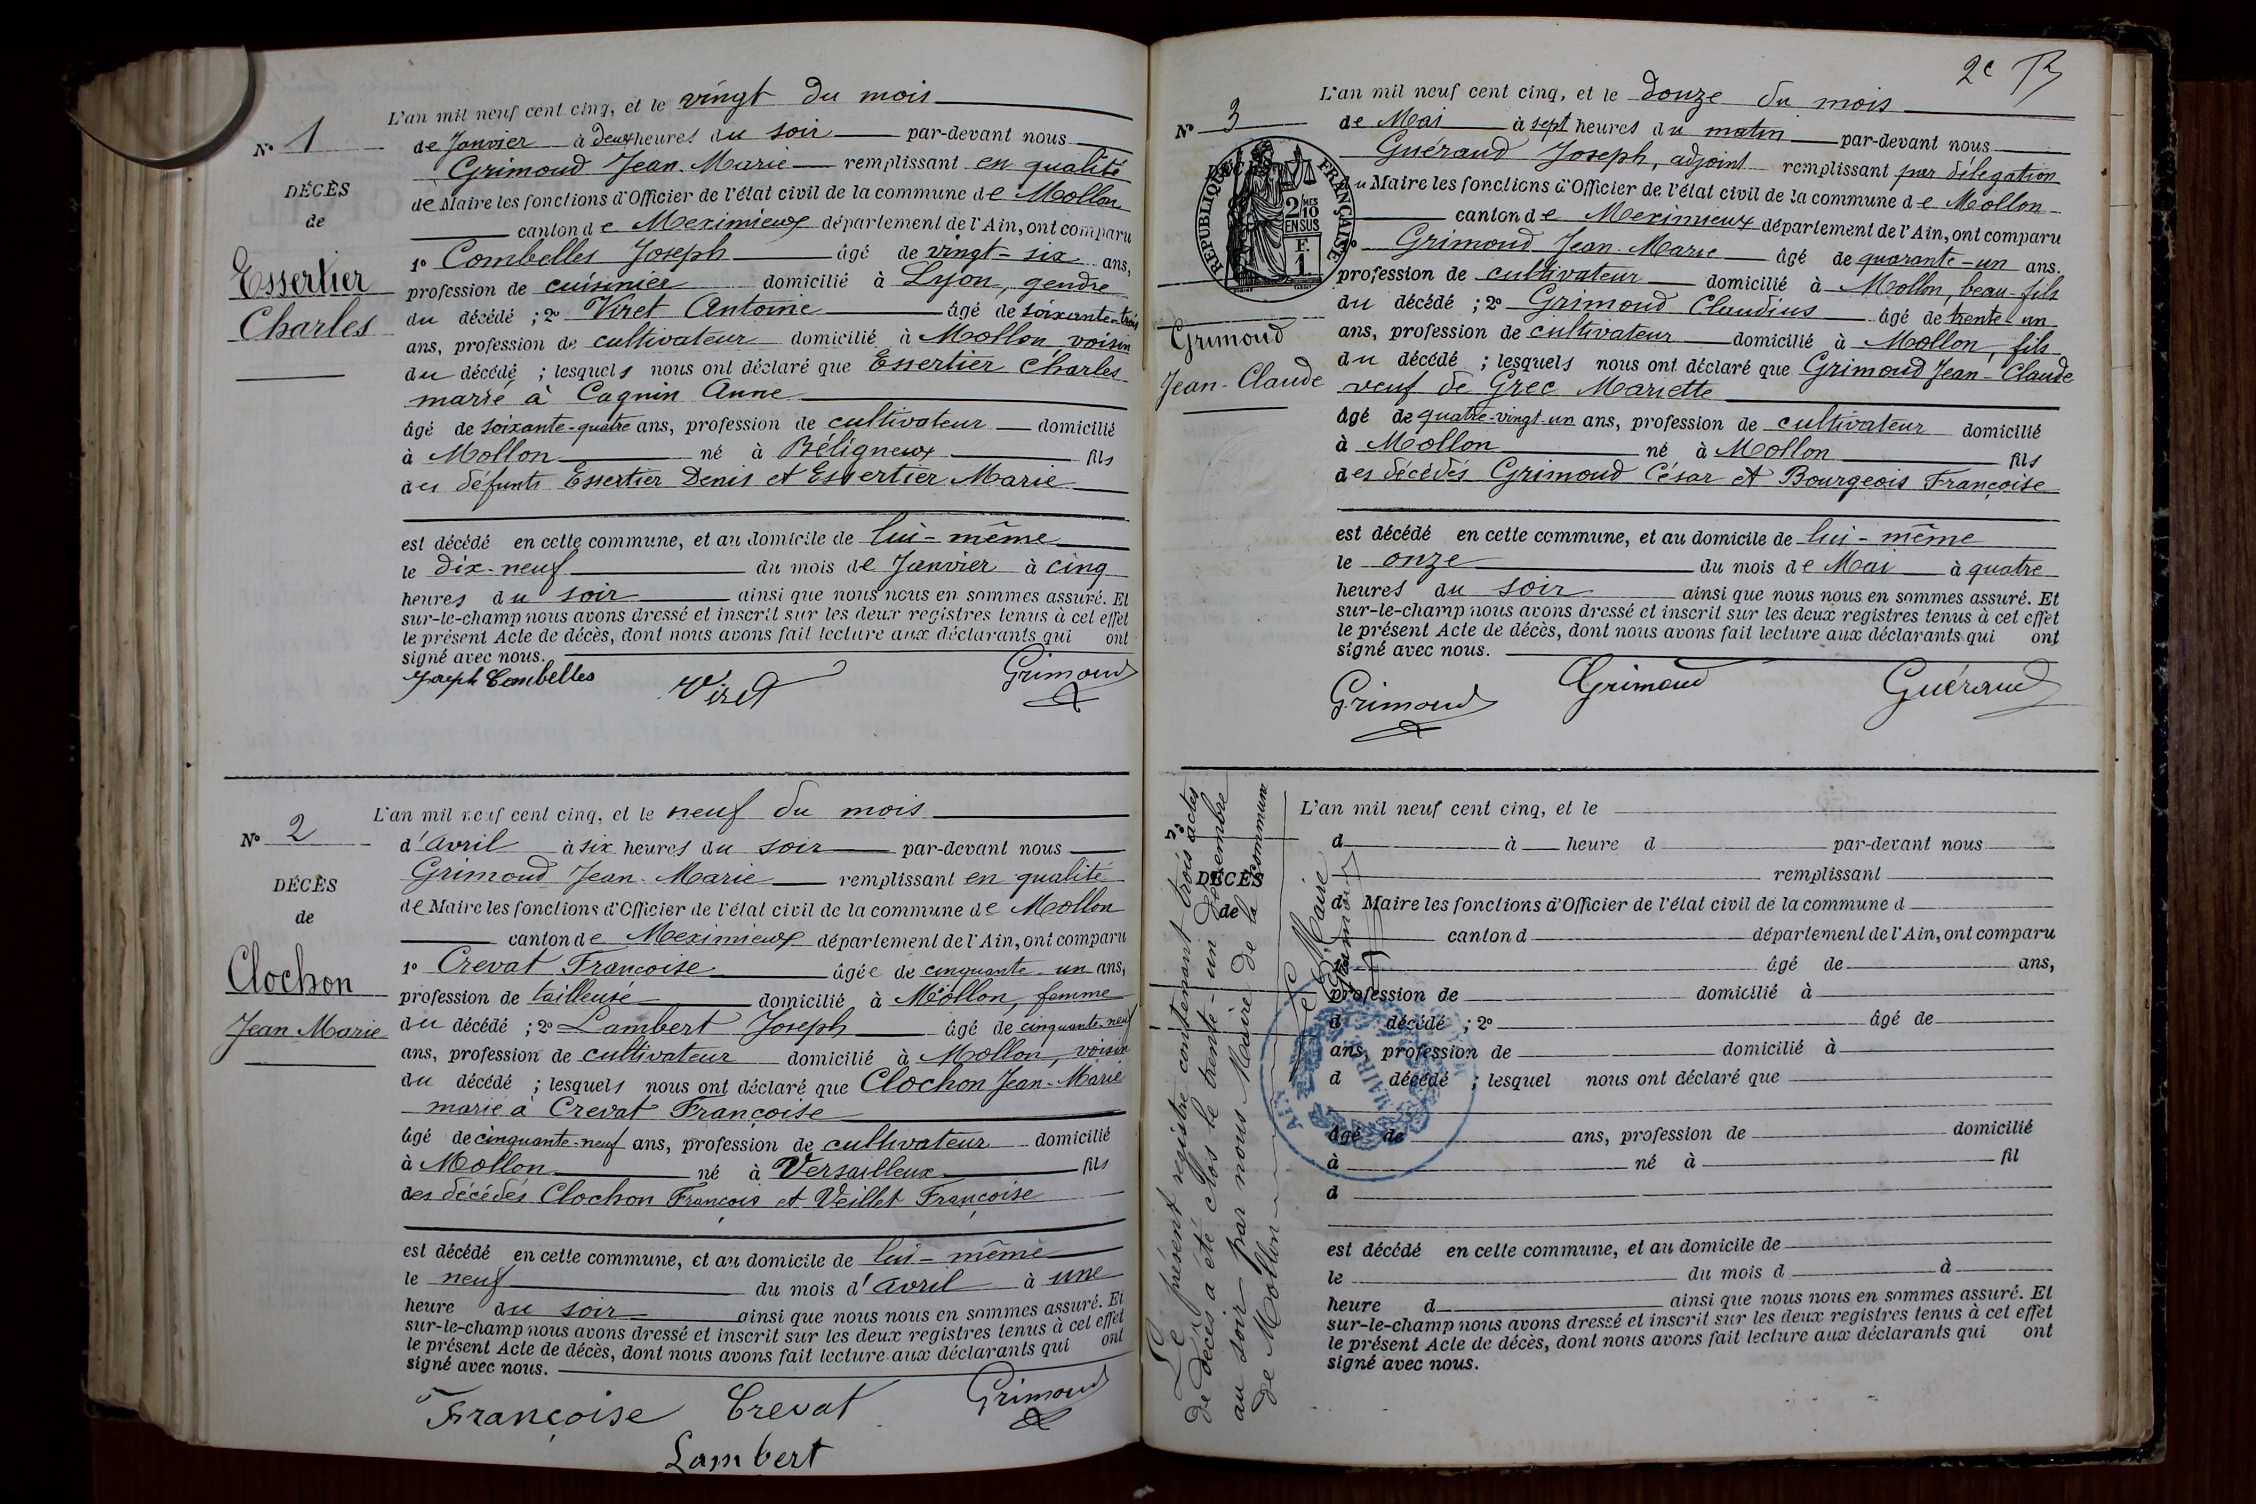 L'an mil neuf cent cinq, et le vingt du mois
N° 1
de Janvier à deux heures du soir par-devant nous
Grimoud Jean-Marie remplissant en qualité
DÉCÈS
de Maire les fonctions d'Officier de l'état civil de la commune de Mollon
de
canton de Meximieux département de l'Ain, ont comparu
1° Combelles Joseph âgé de vingt-six ans,
Essertier
profession de cuisinier domicilié à Lyon, gendre
Charles
du décédé ; 2° Viret Antoine âgé de soixante-trois
ans, profession de cultivateur domicilié à Mollon, voisin
du décédé ; lesquels nous ont déclaré que Essertier Charles
marié à Cagnin Anne
âgé de soixante-quatre ans, profession de cultivateur domicilié
à Mollon né à Béligneux fils
des défunts Essertier Denis et Essertier Marie
est décédé en cette commune, et au domicile de lui-même
le dix-neuf du mois de Janvier à cinq
heures du soir ainsi que nous nous en sommes assuré. Et
sur-le-champ nous avons dressé et inscrit sur les deux registres tenus à cet effet
le présent Acte de décès, dont nous avons fait lecture aux déclarants qui ont
signé avec nous.
Joseph Combelles Viret Grimoud
L'an mil neuf cent cinq, et le neuf du mois
N° 2
d'avril à six heures du soir par-devant nous
Grimoud Jean-Marie remplissant en qualité
DÉCÈS
de Maire les fonctions d'Officier de l'état civil de la commune de Mollon
de
canton de Meximieux département de l'Ain, ont comparu
1° Crevat Françoise âgée de cinquante-un ans,
Clochon
profession de tailleuse domicilié à Mollon, femme
Jean Marie
du décédé ; 2° Lambert Joseph âgé de cinquante-neuf
ans, profession de cultivateur domicilié à Mollon, voisin
du décédé ; lesquels nous ont déclaré que Clochon Jean-Marie
marié à Crevat Françoise
âgé de cinquante-neuf ans, profession de cultivateur domicilié
à Mollon né à Versailleux fils
des décédés Clochon François et Veillet Françoise
est décédé en cette commune, et au domicile de lui-même
le neuf du mois d'avril à une
heure du soir ainsi que nous nous en sommes assuré. Et
sur-le-champ nous avons dressé et inscrit sur les deux registres tenus à cet effet
le présent Acte de décès, dont nous avons fait lecture aux déclarants qui ont
signé avec nous.
Françoise Crevat Grimoud
Lambert
2e
L'an mil neuf cent cinq, et le douze du mois
N° 3
de Mai à sept heures du matin par-devant nous
Guéraud Joseph, adjoint remplissant par délégation
DÉCÈS
RÉPUBLIQUE FRANÇAISE
2 MES
10
EN SUS
F.
1.
du Maire les fonctions d'Officier de l'état civil de la commune de Mollon
canton de Meximieux département de l'Ain, ont comparu
1° Grimoud Jean-Marie âgé de quarante-un ans.
profession de cultivateur domicilié à Mollon, beau-fils
du décédé ; 2° Grimoud Claudius âgé de trente-un
Grimoud
ans, profession de cultivateur domicilié à Mollon, fils
Jean-Claude
du décédé ; lesquels nous ont déclaré que Grimoud Jean-Claude
veuf de Grec Mariette
âgé de quatre-vingt-un ans, profession de cultivateur domicilié
à Mollon né à Mollon fils
des décédés Grimoud César et Bourgeois Françoise
est décédé en cette commune, et au domicile de lui-même
le onze du mois de Mai à quatre
heures du soir ainsi que nous nous en sommes assuré. Et
sur-le-champ nous avons dressé et inscrit sur les deux registres tenus à cet effet
le présent Acte de décès, dont nous avons fait lecture aux déclarants qui ont
signé avec nous.
Grimoud Grimoud Guéraud
Le présent registre contenant trois actes
de décès a été clos le trente-un décembre
au soir par nous Maire de la commune
de Mollon
Le Maire
Grimoud
AIN
MAIRIE
L'an mil neuf cent cinq, et le
N°
d à heure d par-devant nous
remplissant
DÉCÈS
d Maire les fonctions d'Officier de l'état civil de la commune d
de
canton d département de l'Ain, ont comparu
1° âgé de ans,
profession de domicilié à
d décédé ; 2° âgé de
ans, profession de domicilié à
d décédé ; lesquel nous ont déclaré que
âgé de ans, profession de domicilié
à né à fil
d
est décédé en cette commune, et au domicile de
le du mois d à
heure d ainsi que nous nous en sommes assuré. Et
sur-le-champ nous avons dressé et inscrit sur les deux registres tenus à cet effet
le présent Acte de décès, dont nous avons fait lecture aux déclarants qui ont
signé avec nous.